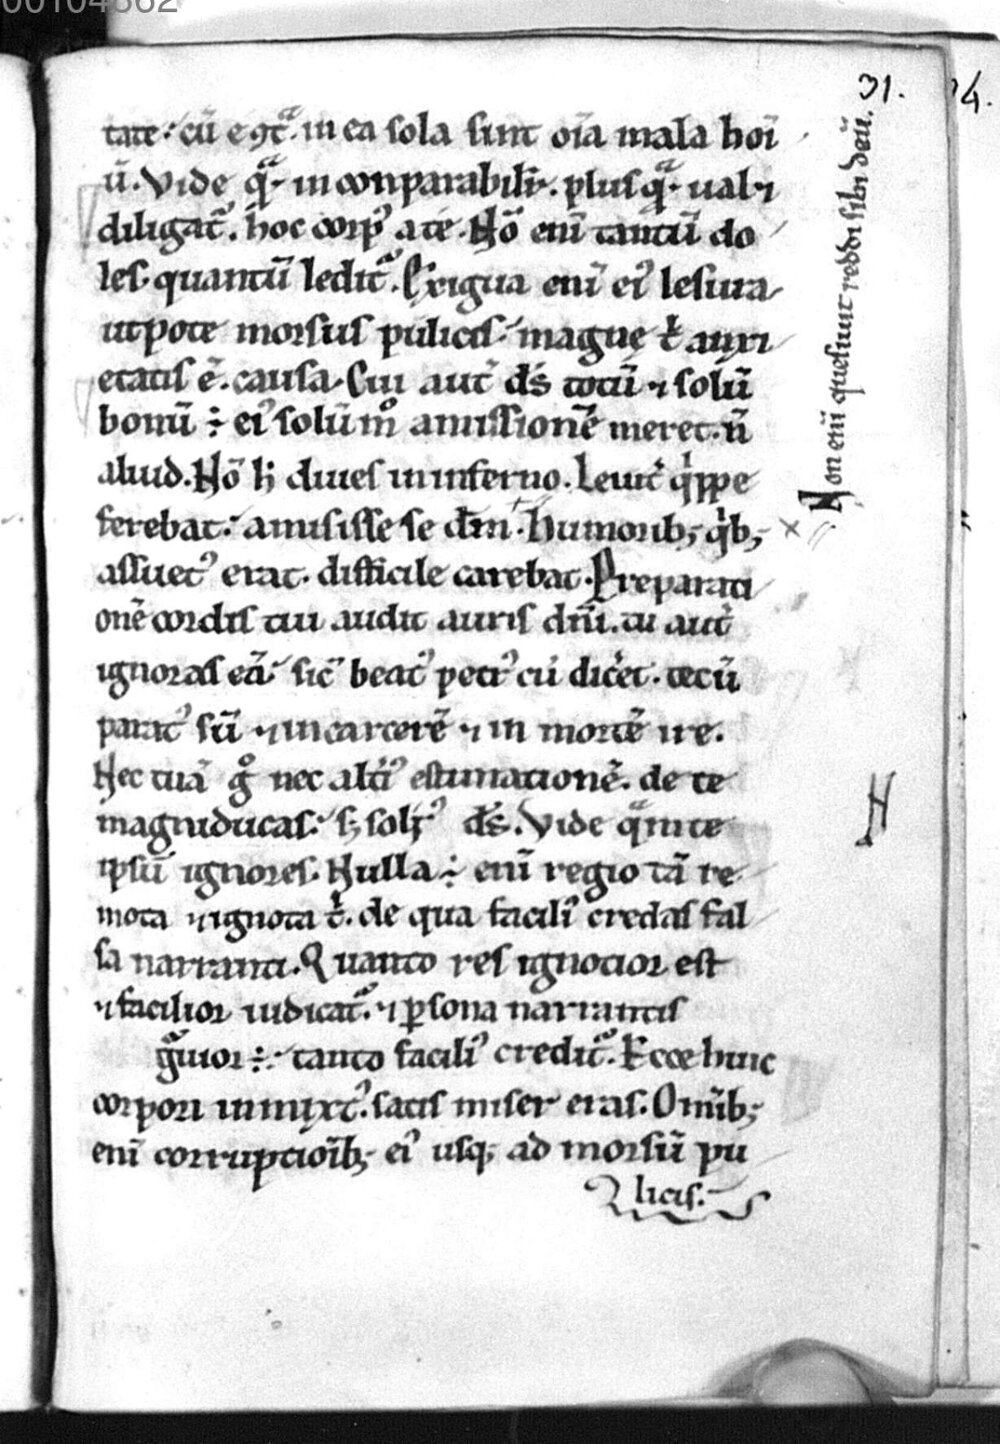 00104862
31.
4.
tate: cū e ↄt̾ᵃ. in ea sola sint oīa mala hoī
ū. Vide qͣ. inconparabilit̾. plus qͣ. ualꝛ
diligat᷑. hoc corpꝰ a te. Nō enī tantū do
les. quantū ledit᷑. Exigua enī eiꝰ lesura
utpote morsus pulicis. magnę t̾ anxi
etatis ē. causa. Cui aut̄ ds̄ totū ⁊ solū
bonū ÷ eiꝰ solūm̊ amissionē meret. ū
aliud. Nō h̄ diues in inferno. Leuit̾ qͥppe
ferebat: amisisse se dm̄. humorib; qͥb;
assuetꝰ erat. difficile carebat. Preparati
onē cordis tui audit auris dn̄i. tu aut̄
ignoras eā. sic̄ beatꝰ petrꝰ cū dic̾et. tecū
paratꝰ sū ⁊ in carcerē ⁊ in mortē ire.
Nec tuā g̊ nec alt̾iꝰ estimationē. de te
magniducas. s; soliꝰ ds̄. Vide qͣm te
ipsū ignores. Nulla ÷ enī regio tā re
mota ⁊ ignota t̾. de qua faciliꝰ credas fal
sa narranti. Quanto res ignotior est
⁊ facilior iudicat᷑. ⁊ ꝑsona narrantis
gͣuior ÷: tanto faciliꝰ credit᷑. Ecce huic
corpori inmixtꝰ. satis miser eras. Omīb;
enī corruptioīb; eiꝰ usq; ad morsū pu
licis.
Non enī quesiuit reddi sibi deū.